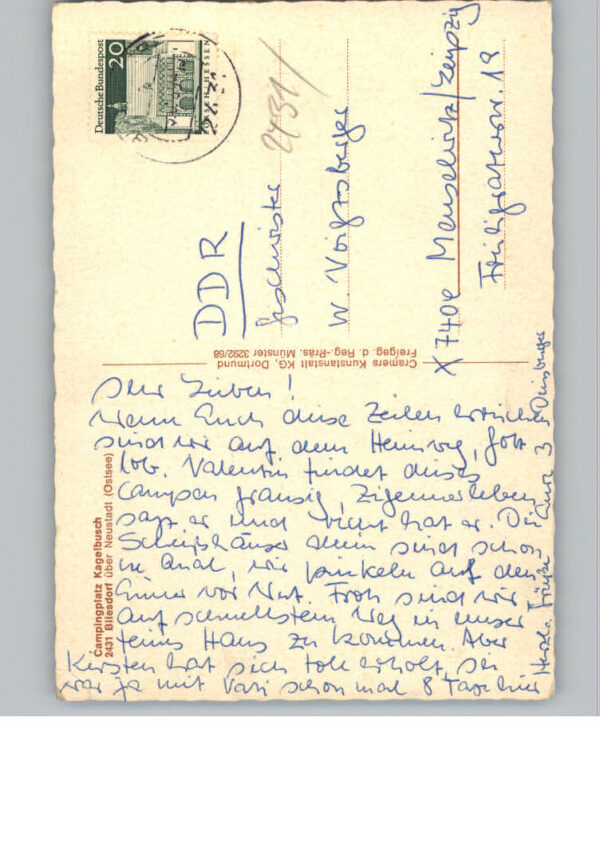 Ihr Lieben!
Wenn Euch diese Zeilen erreichen
sind wir auf dem Heimweg, Gott
lob. Valentin findet dieses
Campen grausig, Zigeunerleben
sagt er und recht hat er. Die
Scheißhäuser allein sind schon
ne Qual, wir pinkeln auf den
Eimer vor Not. Froh sind wir
auf schnellstem Weg in unser
feines Haus zu kommen. Aber
Kersten hat sich toll erholt, sie
war ja mit Vati schon mal 8 Tage hier
Herzl. Grüße Eure 3 Duisburger
Campingplatz Kagelbusch
2431 Bliesdorf über Neustadt (Ostsee)
Cramers Kunstanstalt KG, Dortmund
Freigeg. d. Reg.-Präs. Münster 3292/68
Deutsche Bundespost
20
LORSCH/HESSEN
2431
DDR
Geschwister
W. Voigtsberger
X 7404 Meuselwitz/Leipzig
Freiligrathstr. 19